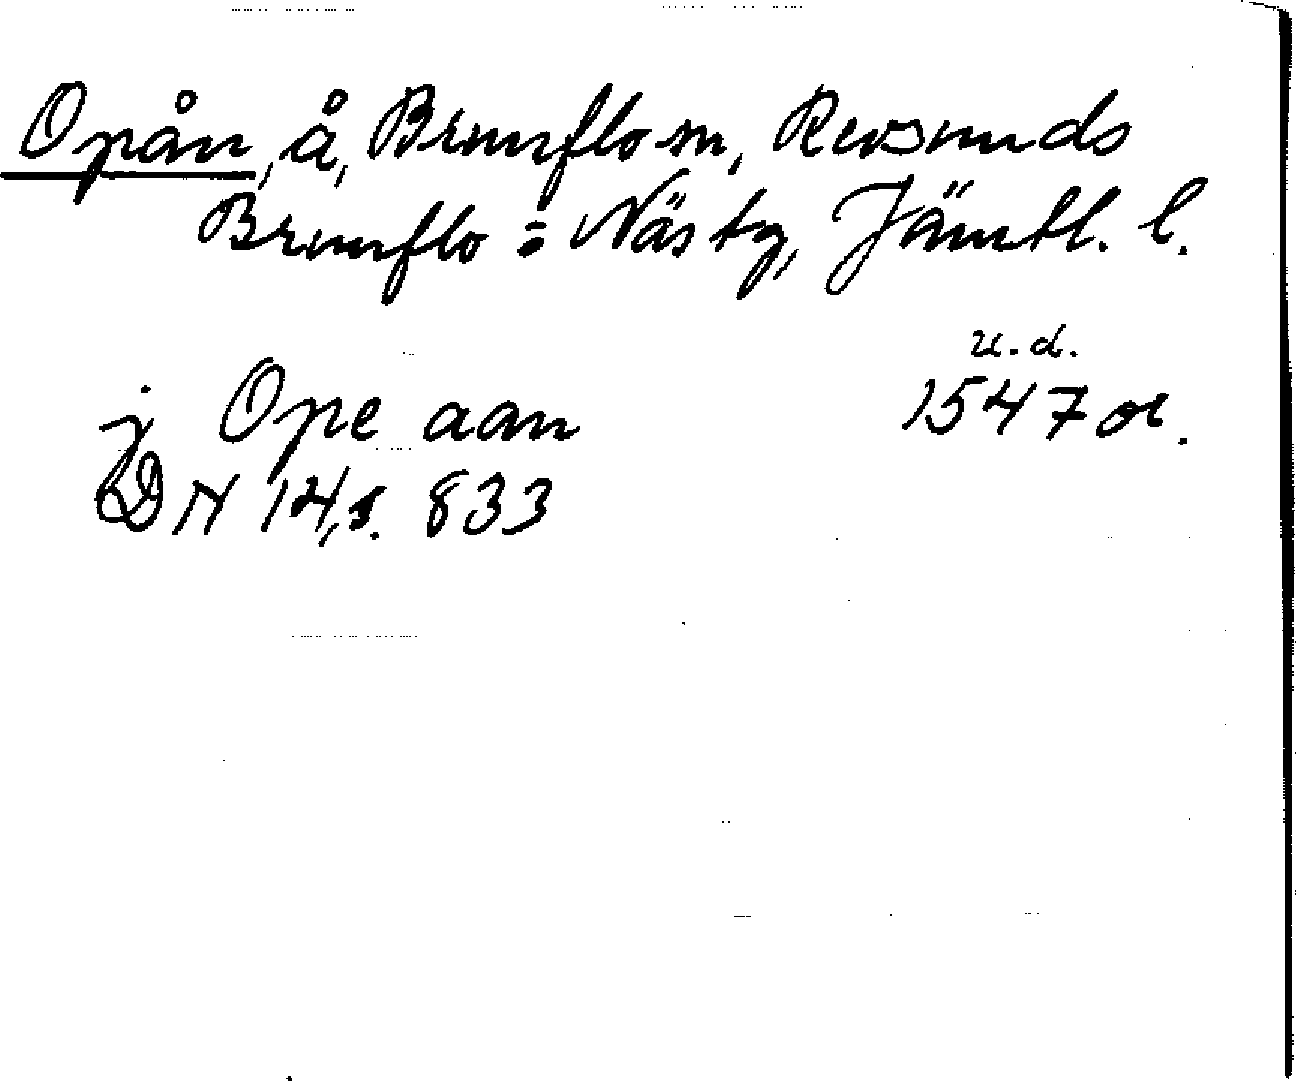 Opån, å, Brunflo sn, Revsunds
Brunflo = Näs tg, Jämtl. l.
u.d.
j Ope aan 1547 or.
DN 14, s. 833